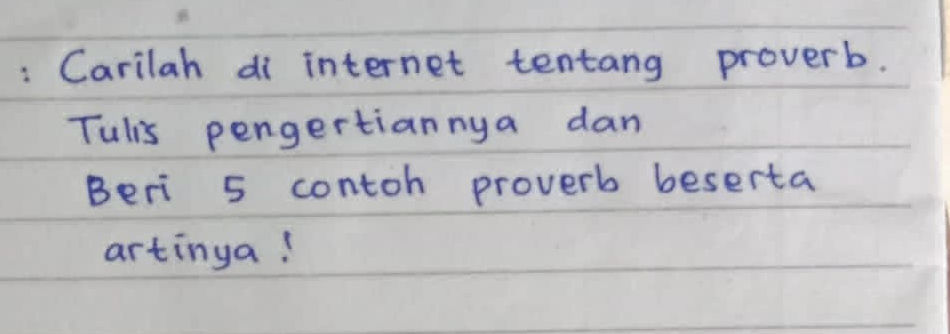 : Carilah di internet tentang proverb.
Tulis pengertiannya dan
Beri 5 contoh proverb beserta
artinya!